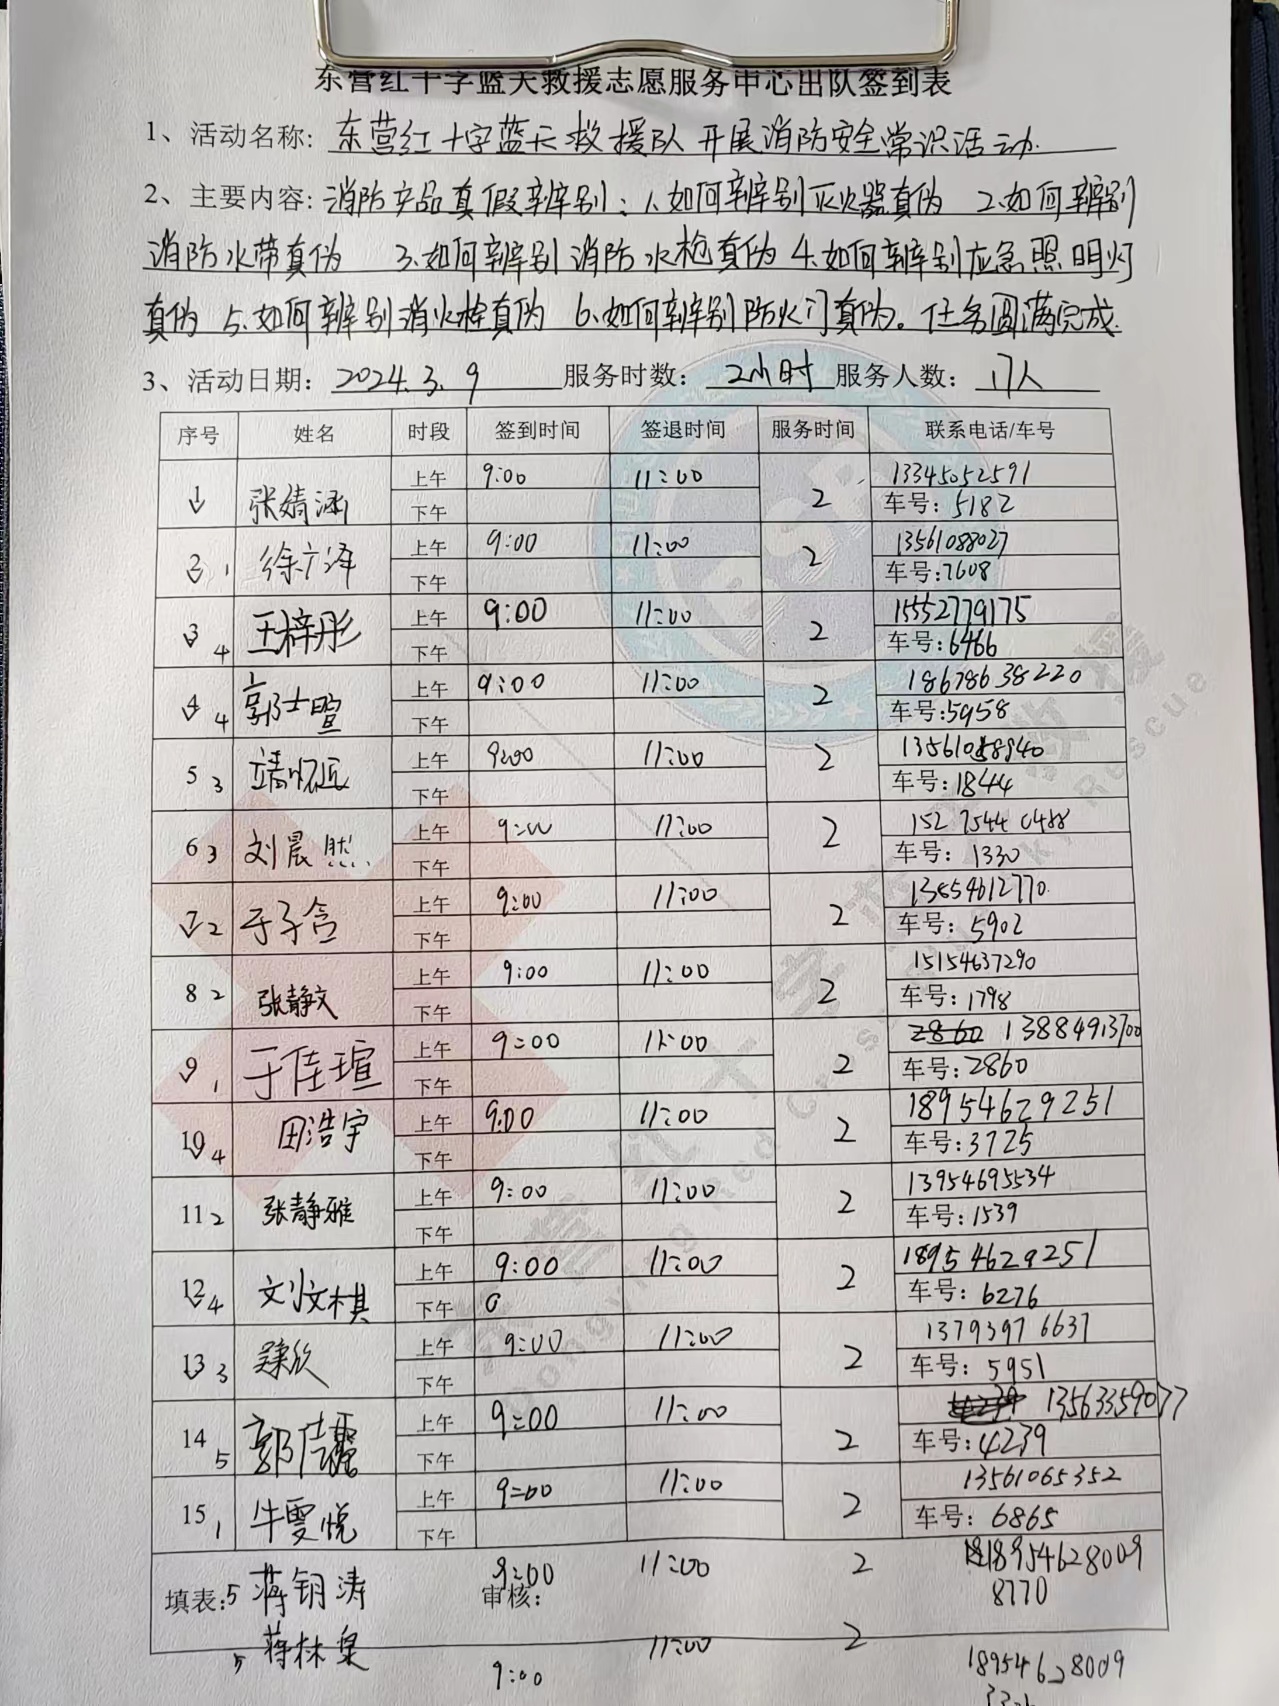 东营红十字蓝天救援志愿服务中心出队签到表
1、活动名称: 东营红十字蓝天救援队开展消防安全常识活动
2、主要内容: 消防产品真假辨别: 1.如何辨别灭火器真伪 2.如何辨别
消防水带真伪 3.如何辨别消防水枪真伪 4.如何辨别应急照明灯
真伪 5.如何辨别消火栓真伪 6.如何辨别防火门真伪。任务圆满完成.
3、活动日期: 2024.3.9 服务时数: 2小时 服务人数: 17人
序号 姓名 时段 签到时间 签退时间 服务时间 联系电话/车号
1 张婧涵 上午 9:00 11:00 2 13345052591
下午 车号: 5182
2 1 徐广泽 上午 9:00 11:00 2 13561088027
下午 车号:7608
3 4 王梓彤 上午 9:00 11:00 2 15552779175
下午 车号:6466
4 4 郭士暄 上午 9:00 11:00 2 18678638220
下午 车号:5958
5 3 靖怀远 上午 9:00 11:00 2 13561058940
下午 车号:1844
6 3 刘晨然 上午 9:00 11:00 2 15275440488
下午 车号: 1330
7 2 于子含 上午 9:00 11:00 2 13854612770
下午 车号: 5902
8 2 张静文 上午 9:00 11:00 2 15154637290
下午 车号: 1798
9 1 于佳瑄 上午 9:00 11:00 2 2860 13884913700
下午 车号:2860
10 4 田浩宇 上午 9:00 11:00 2 18954629251
下午 车号:3725
11 2 张静雅 上午 9:00 11:00 2 13954695534
下午 车号:1539
12 4 上午 9:00 11:00 2 18954629251
下午 0 车号: 6276
13 3 上午 9:00 11:00 2 13793976637
下午 车号: 5951
14 5 郭 上午 9:00 11:00 2 13563359077
下午 车号:4239
15 1 牛雯悦 上午 9:00 11:00 2 13561065352
下午 车号: 6865
填表: 5 蒋钥涛 9:00 审核: 11:00 2 18954628009
8770
5 蒋林泉 9:00 11:00 2 18954628009